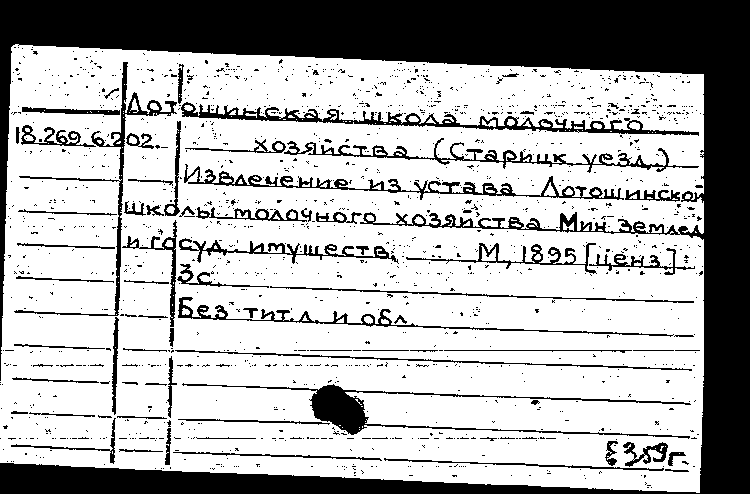 Лотошинская школа молочного
18.269.6.202. хозяйства (Старицк. уезд.)
Извлечение из устава Лотошинской
школы молочного хозяйства Мин. землед.
и госуд. имуществ. М, 1895 [ценз.]
3с.
Без тит. л. и обл.
359г.